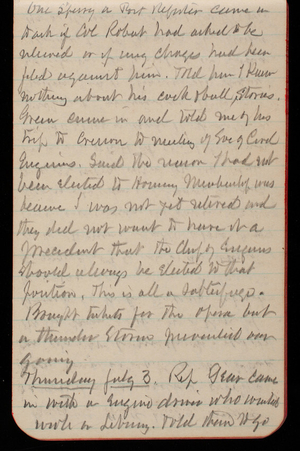 One Sperry a Post Reporter came in
track if Col Robert had asked to be
relieved or if any charges had been
filed against him. Told him I knew
nothing about his cock & bull stories.
Green came in and told me of his
trip to to meeting of Soc of Civil
Engineers. Said the reason I had not
been elected to Honory Membership was
because I was not yet retired and
they did not want to have it a
precedent that the Chief of Engineers
should always be elected to that
position. This is all a subterfuge.
Bought tickets for the opera but
a thunder storm prevented our
going
Thursday July 3. Rep came
in with a Engine driver who wanted
work on Library. Told them to go